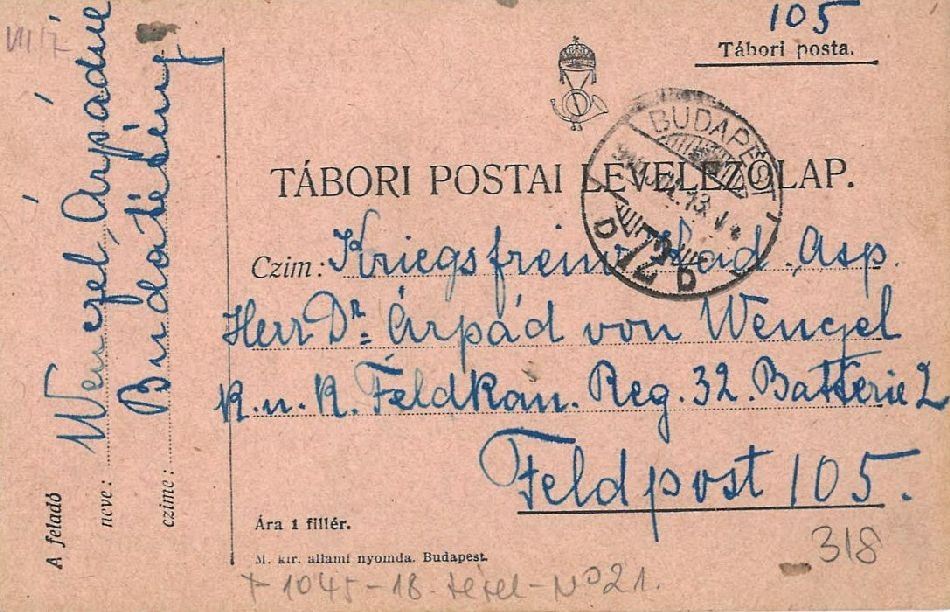 VII 7
105
Tábori posta.
BUDAPEST
72
D b
TÁBORI POSTAI LEVELEZŐLAP.
Czim: Kriegsfreiw. Kad. Asp.
Herr Dr. Árpád von Wenczel
K. u. K. Feldkan. Reg. 32. Batterie 2
Feldpost 105.
A feladó
neve: Wenczel Árpádné
czime: Budatétény
Ára 1 fillér.
M. kir. állami nyomda. Budapest.
318
1045-18. tétel - No 21.